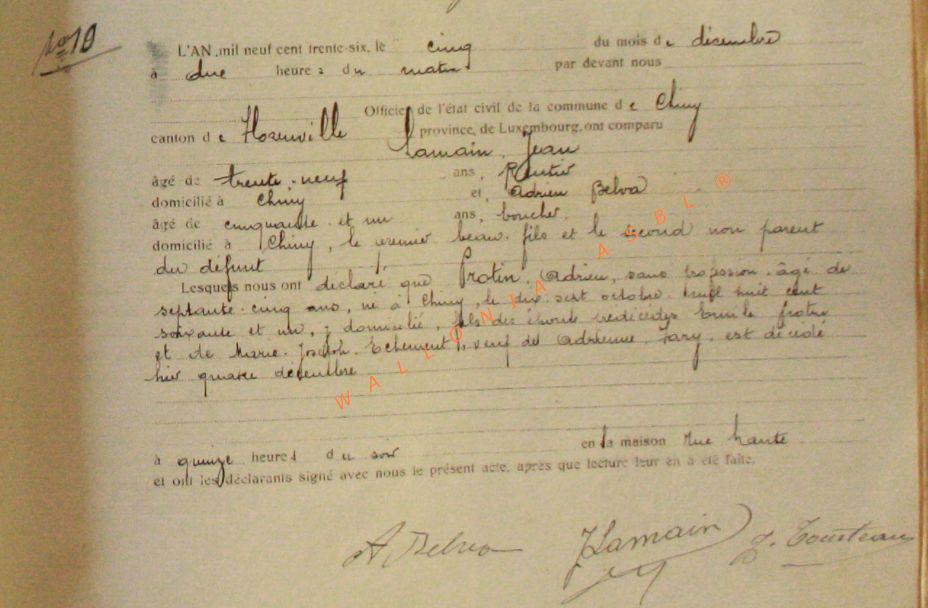 No 10
L'AN mil neuf cent trente-six, le cinq du mois de décembre
à heures du matin par devant nous
Officier de l'état civil de la commune de Chiny
canton de Florenville province de Luxembourg, ont comparu
Lamain, Jean
âgé de trente-neuf ans, Rentier
domicilié à Chiny et Adrien Belva
âgé de cinquante et un ans, boucher
domicilié à Chiny, le premier beau-fils et le second non parent
du défunt
Lesquels nous ont déclaré que Protin, Adrien, sans profession, âgé de
septante-cinq ans, né à Chiny, le dix-sept octobre mil huit cent
soixante et un, y domicilié, fils des époux prédécédés frotin
et de Marie-Joseph, veuf de Adrienne, est décédé
hier quatre décembre
à quinze heures du soir en la maison Rue haute
et ont les déclarants signé avec nous le présent acte, après que lecture leur en a été faite.
A. Belva JLamain J. Tousteau
WALLONIA ASBL ®